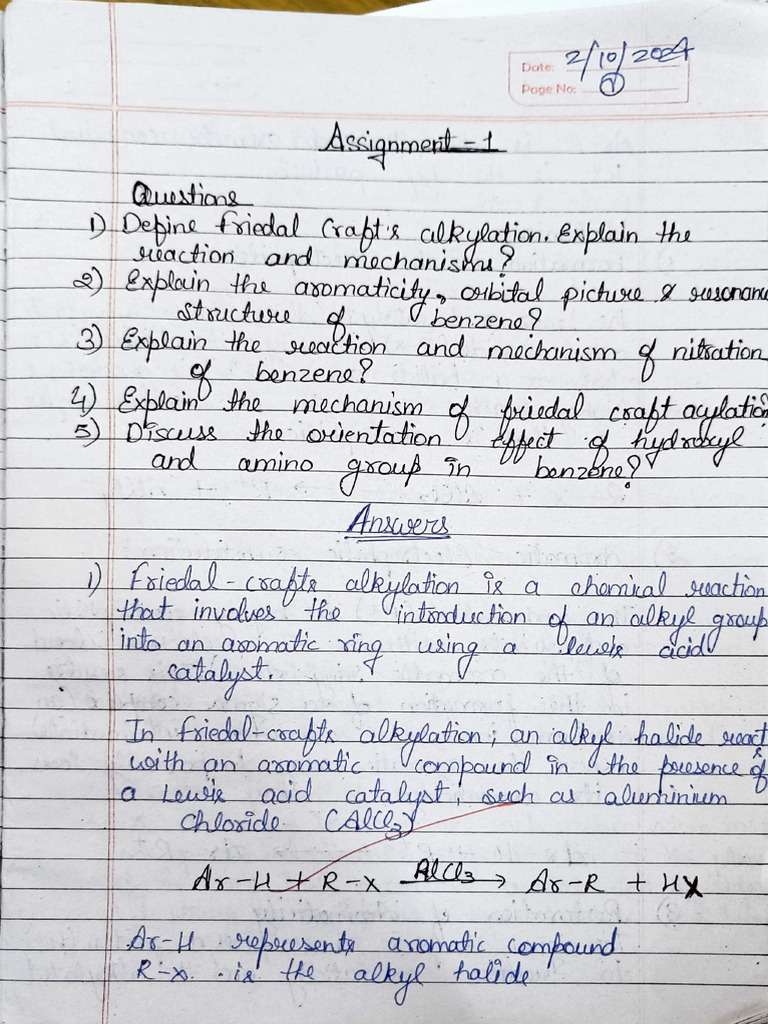 Date: 2/10/2024
Page No: 1
Assignment - 1
Questions
1) Define Friedal Craft's alkylation. Explain the
reaction and mechanisms?
2) Explain the aromaticity, orbital picture & resonanc
structure of benzene?
3) Explain the reaction and mechanism of nitration
of benzene?
4) Explain the mechanism of friedal craft acylation
5) Discuss the orientation effect of hydroxyl
and amino group in benzene?
Answers
1) Friedal-crafts alkylation is a chemical reaction
that involves the introduction of an alkyl group
into an aromatic ring using a lewis acid
catalyst.
In friedal-crafts alkylation, an alkyl halide reacts
with an aromatic compound in the presence of
a Lewis acid catalyst, such as aluminium
chloride (AlCl3)
Ar-H + R-X AlCl3 → Ar-R + HX
Ar-H represents aromatic compound
R-x. is the alkyl halide